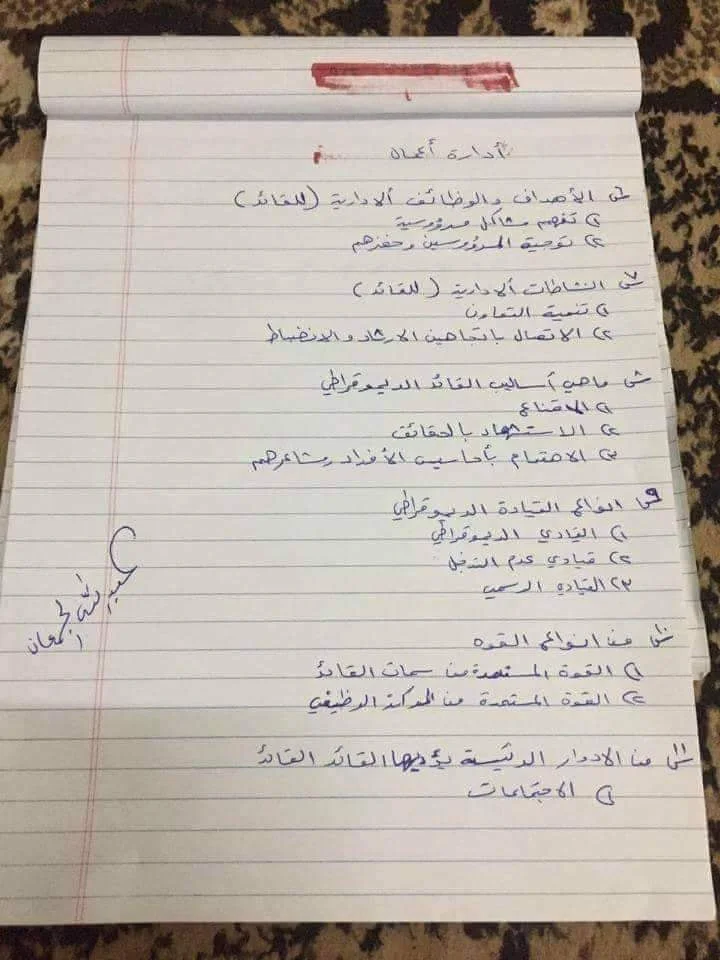 أدارة أعمال
س٦ الأهداف والوظائف ألادارية (للقائد)
١) تفهم مشاكل مرؤوسية
٢) توجية المرؤوسين وحفزهم
س٧ النشاطات ألادارية (للقائد)
١) تنمية التعاون
٢) الاتصال باتجاهين الارشاد والانضباط
س٨ ماهي أساليب القائد الديموقراطي
١) الاقناع
٢) الاستشهاد بالحقائق
٣) الاهتمام بأحاسيس الأفراد ومشاعرهم
س٩ انواع القيادة الديموقراطي
١) القيادي الديموقراطي
٢) قيادي عدم التدخل
٣) القيادي الرسمي
س١٠ من انواع القوه
١) القوة المستمدة من سمات القائد
٢) القوة المستمدة من المركز الوظيفي
س١١ من الادوار الرئيسة يؤديها القائد القائد
١) الاجتماعات